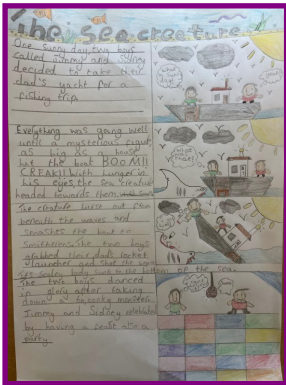 The Sea creature
One sunny day, two boys
called Jimmy and Sidney
decided to take their
dad's yacht for a
fishing trip
Everything was going well
until a mysterious figure
as big as a house
hit the boat BOOM!!
CREAK!! With hunger in
his eyes, the sea creature
headed towards them
The creature lurs out from
beneath the waves and
smashes the boat to
smitherens. The two boys
grabbed their dad's rocket
launcher and shot the
scaley body sunk to the bottom of the sea.
The two boys danced
in glory after taking
down the monster.
Jimmy and Sidney celebrated
by having a feast also a
party